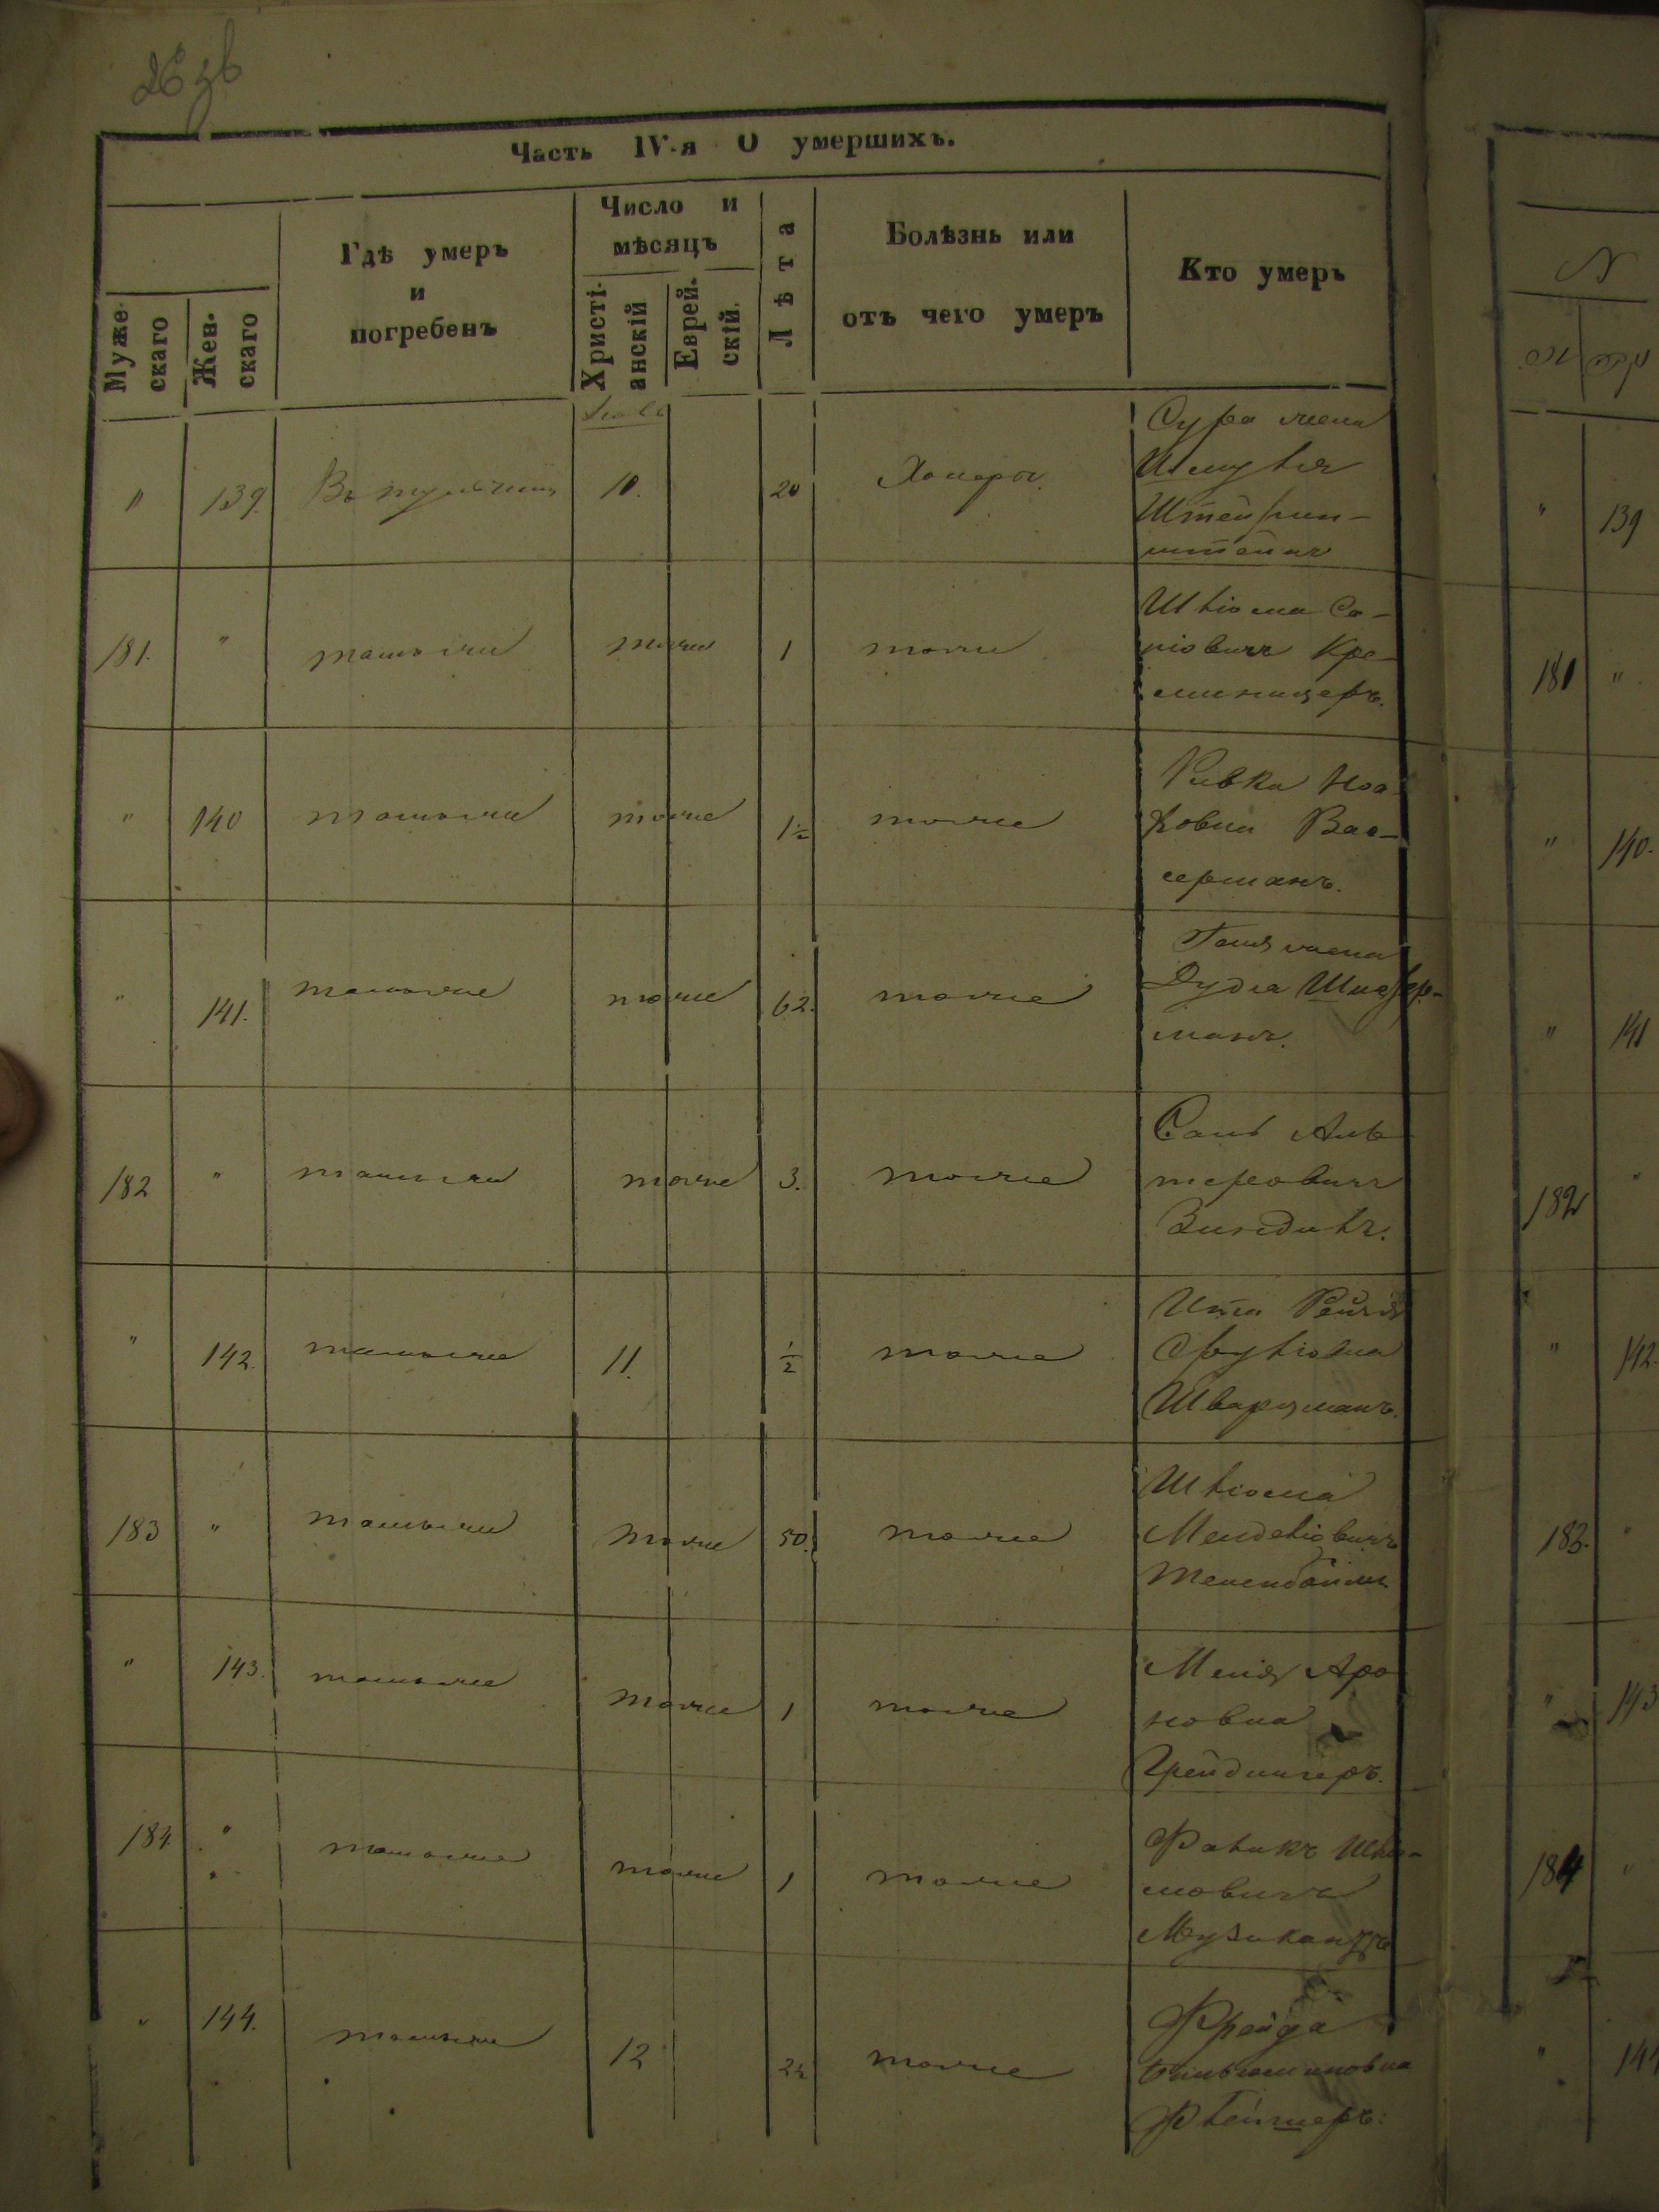 Часть IV-я О умершихъ.
Мужескаго
Женскаго
Гдѣ умеръ
и
погребенъ
Число и
мѣсяцъ
Христі-
анскій
Еврей-
скій.
Лѣта
Болѣзнь или
отъ чего умеръ
Кто умеръ
" 139. Въ 10. 20 Холеры. Сура жена
Шмуля
Штейрин-
штейнъ
181. " тамъже тоже 1 тоже Шліома Со-
ніовичъ Кре-
миницеръ.
" 140 тамъже тоже 1½ тоже Ривка Ноа-
ховна Вас-
серманъ.
" 141. тамъже тоже 62. тоже жена
Дудіа
манъ.
182 " тамъже тоже 3. тоже Аль-
теровичъ
" 142. тамъже 11. ½ тоже Ита Рейзя
Сруліовна
Шварцманъ.
183 " тамъже тоже 50. тоже Шліома
Менделіовичъ
Тененбаймъ
" 143. тамъже тоже 1 тоже Меня Аро-
новна
Грейдингеръ.
184 " тамъже тоже 1 тоже Фаликъ Шліо-
мовичъ
Музикантъ
" 144. тамъже 12 2½ тоже Фрейда
Биньюминовна
Флейшеръ.
N
" 139
181 "
" 140.
" 141
182 "
" 142.
183. "
" 143
184 "
" 144